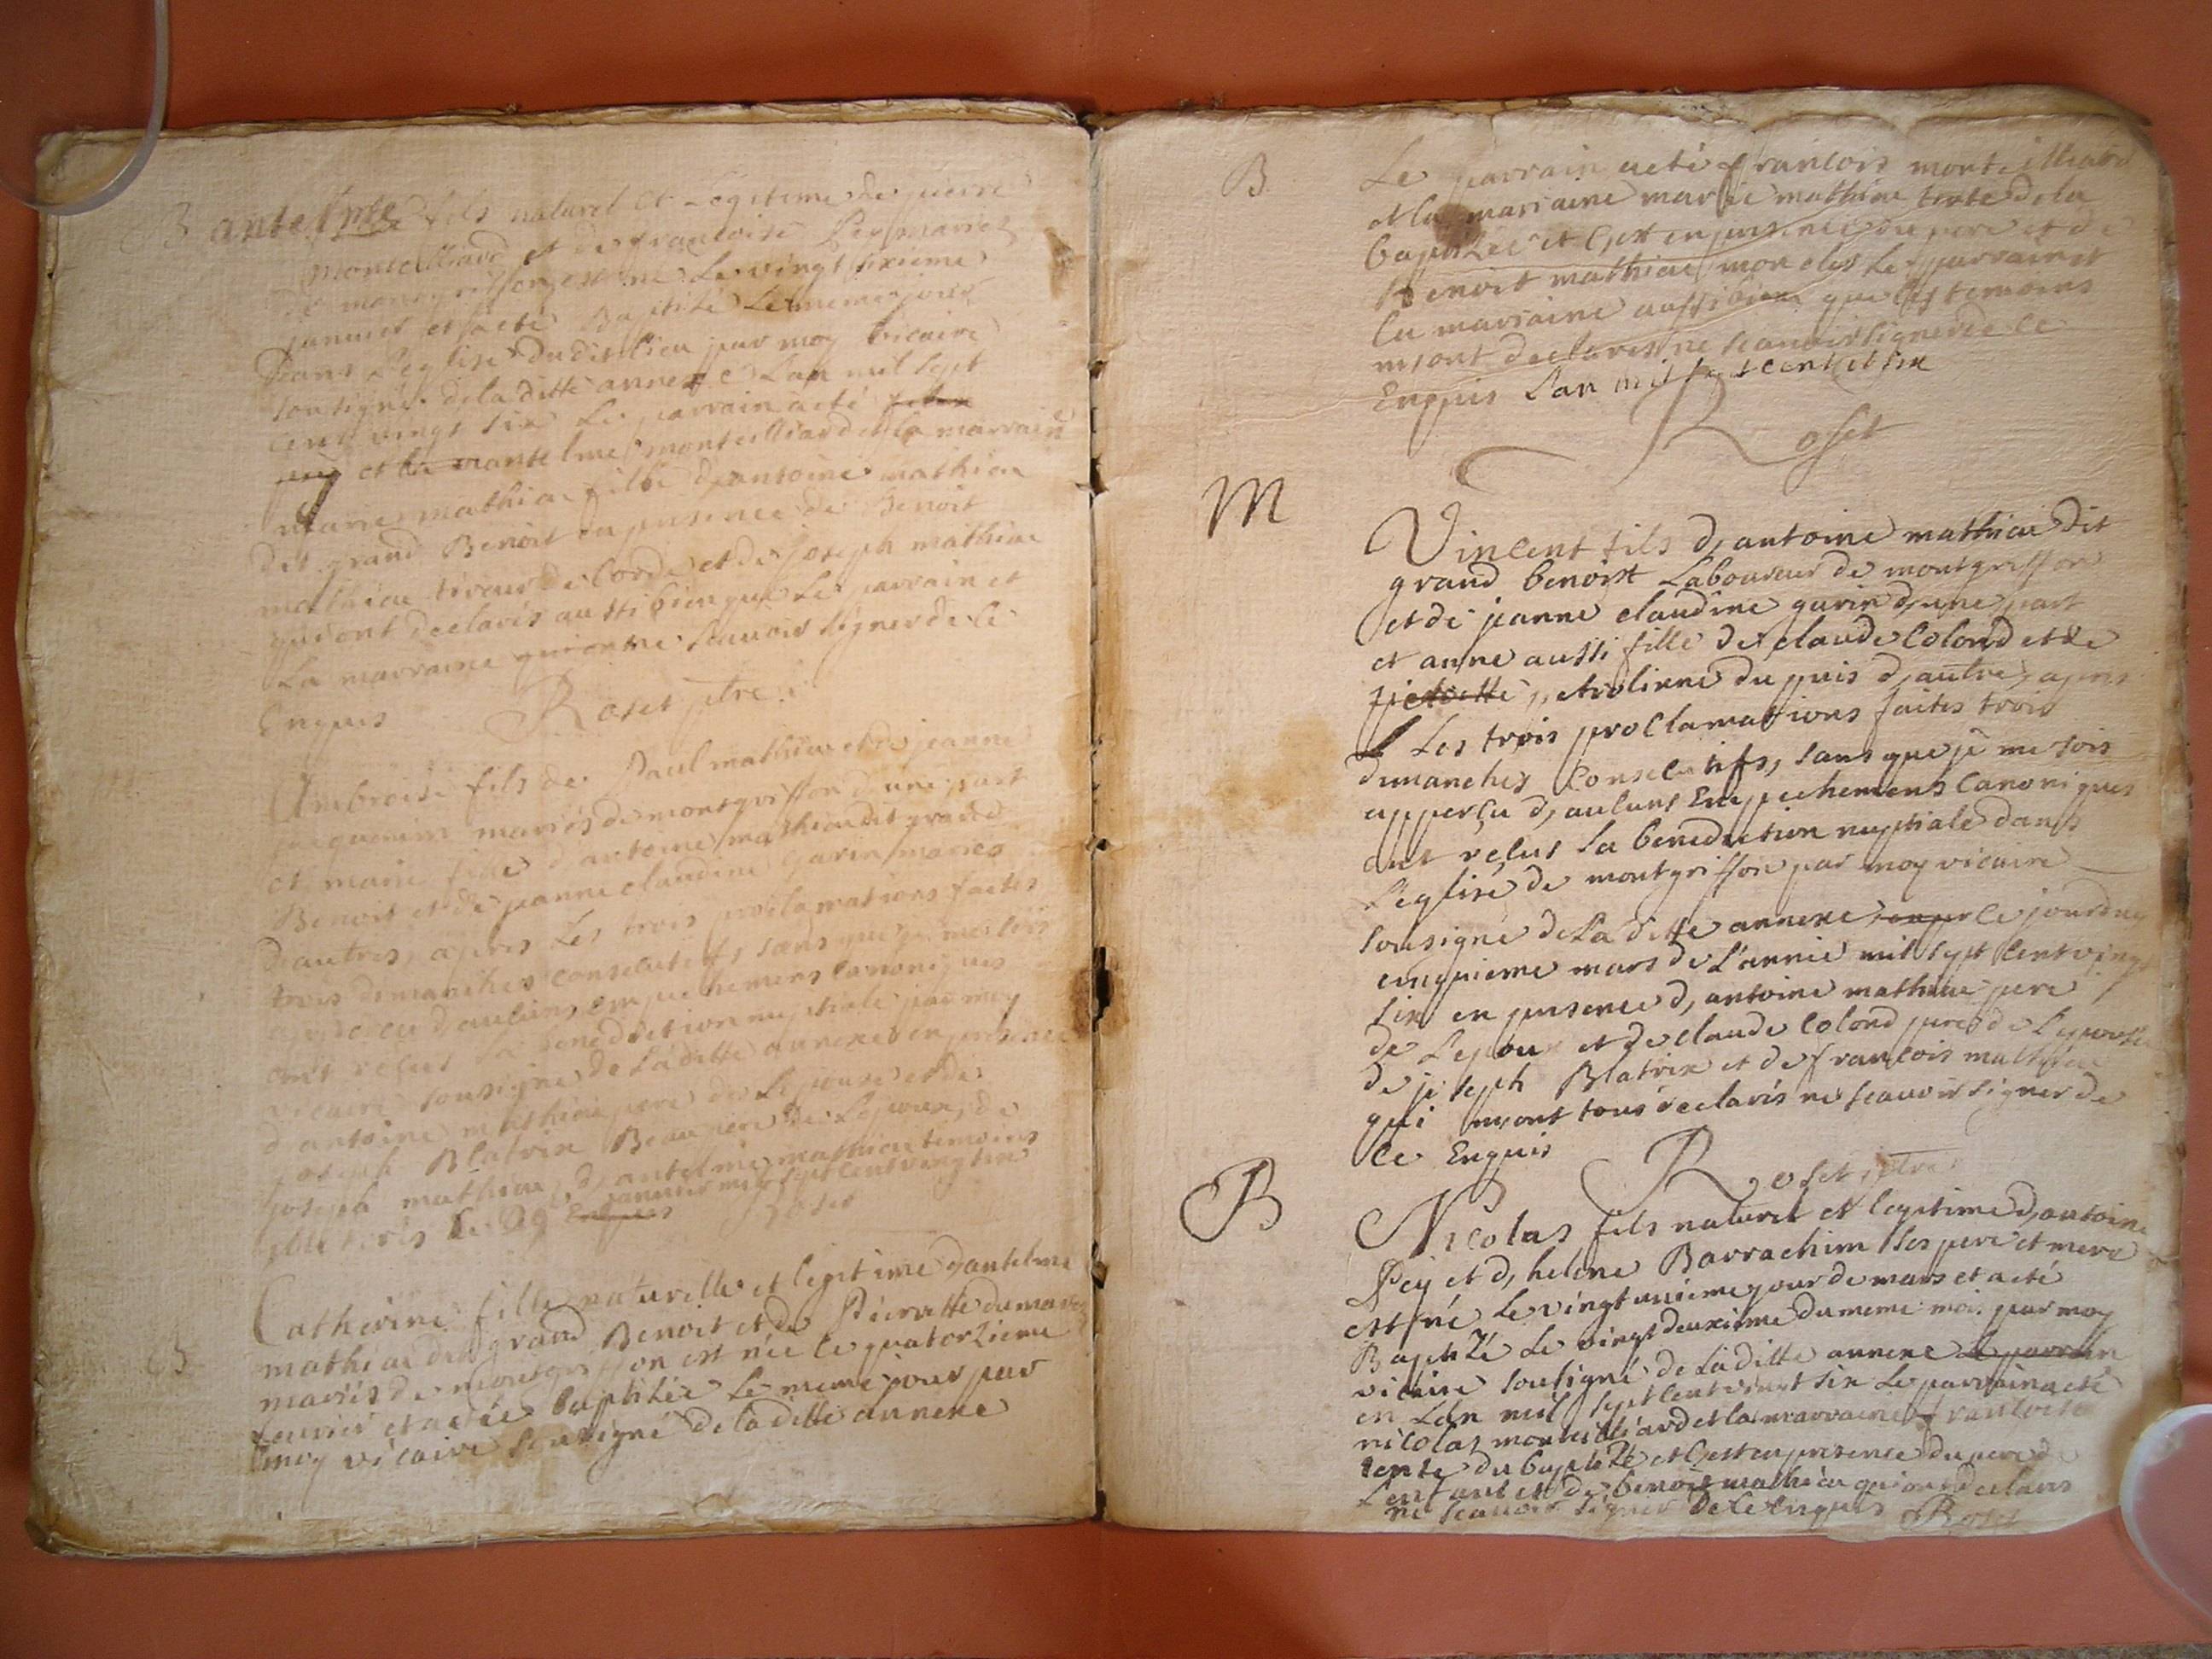 B antelme fils naturel et Legitime de pierre
montillard et de francoise Pey mariés
de montgriffon est né Le vingt sixieme
janvier et acté Baptisé Le meme jour
dans L'eglise du dit lieu par moy vicaire
sousigné de la ditte annexe L'an mil sept
cent vingt six Le parrain acté
et la antelme monteilliard et la marraine
marie mathieu fille d'antoine mathieu
dit grand Benoit en presence de Benoit
mathieu tireur de corde et de joseph mathieu
qui ont declarés aussi bien que Le parrain et
La marraine ne scavoir signer de ce
Enquis Roset ptre
Ambroise fils de Paul mathieu et de jeanne
mariés de montgriffon d'une part
et marie fille d'antoine mathieu dit grand
Benoit et de jeanne claudine garin mariés
d'autres, apres Les trois proclamations faites
trois dimanches consecutifs sans que je me sois
apperçu d'aucuns empechemens canoniques
ont reçus la benediction nuptiale par moy
vicaire sousigné de La ditte annexe en presence
d'antoine mathieu pere de L'epouse et de
joseph Blatrix Beau pere de L'epoux, de
joseph mathieu, d'antelme mathieu temoins
le 29 Enquis janvier mil sept cent vingt six
Roset
Catherine fille naturelle et legitime d'antelme
mathieu dit grand Benoit et de Pierrette dumarest
mariés de montgriffon est née le quatorzieme
fevrier et actée baptisée Le meme jour par
moy vicaire sousigné de la ditte annexe
B Le parrain acté francois monteilliard
et la marraine marie mathieu tante de la
baptizée et c'est en presence du pere et de
Benoit mathieu mon clerc Le parrain et
La marraine aussi bien que les temoins
m'ont declarés ne scauoir signer de ce
Enquis L'an mil sept cent et six
Roset
M
Vincent fils d'antoine mathieu dit
grand benoist Laboureur de montgriffon
et de jeanne claudine garin d'une part
et anne aussi fille de claude Colond et de
pierrette petrolinne du puis d'autre, apres
Les trois proclamations faites trois
dimanches consecutifs, sans que je me sois
apperçu d'aucuns Empechemens Canoniques
ont reçus La benediction nuptiale dans
L'eglise de montgriffon par moy vicaire
sousigné de La ditte annexe, ce jourduy
cinquieme mars de L'année mil sept cent vingt
six en presence d'antoine mathieu pere
de L'epoux et de claude Colond pere de L'epouse
de joseph Blatrix et de francois mathieu
qui m'ont tous declarés ne scauoir signer de
ce Enquis
Roset ptre
B
Nicolas fils naturel et legitime d'antoine
Pey et d'helene Barrachim ses pere et mere
est né Le vingt unieme jour de mars et acté
Baptizé Le vingt deuxieme du meme mois par moy
vicaire sousigné de La ditte annexe Le parrain
en L'an mil sept cent vingt six Le parrain acté
nicolas monteilliard et la marraine francoise
tente du baptizé et c'est en presence du pere de
L'enfant et de benoit mathieu qui ont declarés
ne scauoir signer de ce Enquis Roset